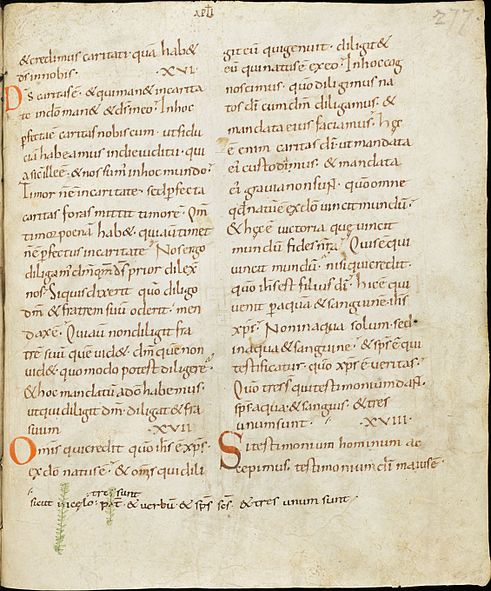 277
& credimus caritati quā hab&
ds innobis. ·XVI·
Ds caritas ē. & qui man& incarita
te indō man& & ds ineo. Inhoc
perfecta ē caritas nobiscum. ut fidu
ciā habeamus indie iudicii. qui
a sicut ille ē. & nos sum' inhoc mundo.
Timor n̄ ē incaritate. sed perfecta
caritas foras mittit timorē. Qm̄
timor poenā hab&. qui aut̄ timet
n̄ ē perfectus incaritate. Nos ergo
diligam' dm̄ qm̄ ds prior dilex
nos. Siquis dixerit quō diligo
dm̄ & fratrem suū oderit. men
dax ē. Qui aut̄ non diligit fra
trē suū quē uid&. dm̄ quē non
uid& quomodo potest diligere.
& hoc mandatū adō habemus.
ut qui diligit dm̄. diligat & fra
suum ·XVII·
Omīs qui credit quō ihs ē xps.
exdō natus ē. & omīs qui dili
git eū qui genuit. diligit &
eū qui natus ē exeo. Inhoc cog
noscimus quō diligimus na
tos dī cum dm̄ diligamus. &
mandata eius faciamus. hęc
ē enim caritas dī. ut mandata
ei' custodimus. & mandata
ei' grauia non sun̄. quō omne
qd natū ē exdō uincit mundū.
& hęc ē uictoria quę uincit
mundū fides nr̄a. Quis ē qui
uincit mundū. nisi qui credit.
quō ihs est filius dī. hic ē qui
uenit per aquā & sanguinē. ihs
xps. Non in aqua solum. sed
in aqua & sanguine. & sps ē qui
testificatur. quō xps ē ueritas.
Quō tres s̄ qui testimoniū dan̄.
sps. aqua. & sanguis. & tres
unum sunt. ·XVIII·
Si testimonium hominum ac
cepimus. testimonium dī maius ē.
tres sunt
sicut in celo. pat̄. & uerbū. & sps scs. & tres unum sunt.